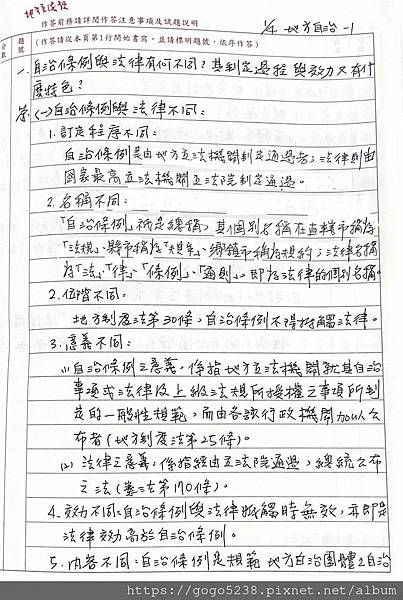 地方自治
1/4 地方自治-1
作答前務請詳閱作答注意事項及試題說明
分數
題號
(作答請從本頁第1行開始書寫,並請標明題號,依序作答)
一、自治條例與法律有何不同?其制定過程與效力又有什
麼特色?
答:(一)自治條例與法律不同:
1.訂定程序不同:
自治條例是由地方立法機關制定通過者;法律則由
國家最高立法機關立法院制定通過。
2.名稱不同:
「自治條例」祇是總稱,其個別名稱在直轄市稱為
「法規」、縣市稱為「規章」、鄉鎮市稱為規約;法律名稱
為「法」、「律」、「條例」、「通則」,即為法律的個別名稱。
2.位階不同:
地方制度法第30條,自治條例不得抵觸法律。
3.意義不同:
(1)自治條例之意義,係指地方立法機關就其自治
事項或法律及上級法規所授權之事項所制
定的一般性規範,而由各該行政機關加以公
布者(地方制度法第25條)。
(2)法律之意義,係指經由立法院通過,總統公布
之法(憲法第170條)。
4.效力不同:自治條例與法律抵觸時無效,亦即是
法律效力高於自治條例。
5.內容不同:自治條例是規範地方自治團體之自治
https://gogo5238.pixnet.net/album